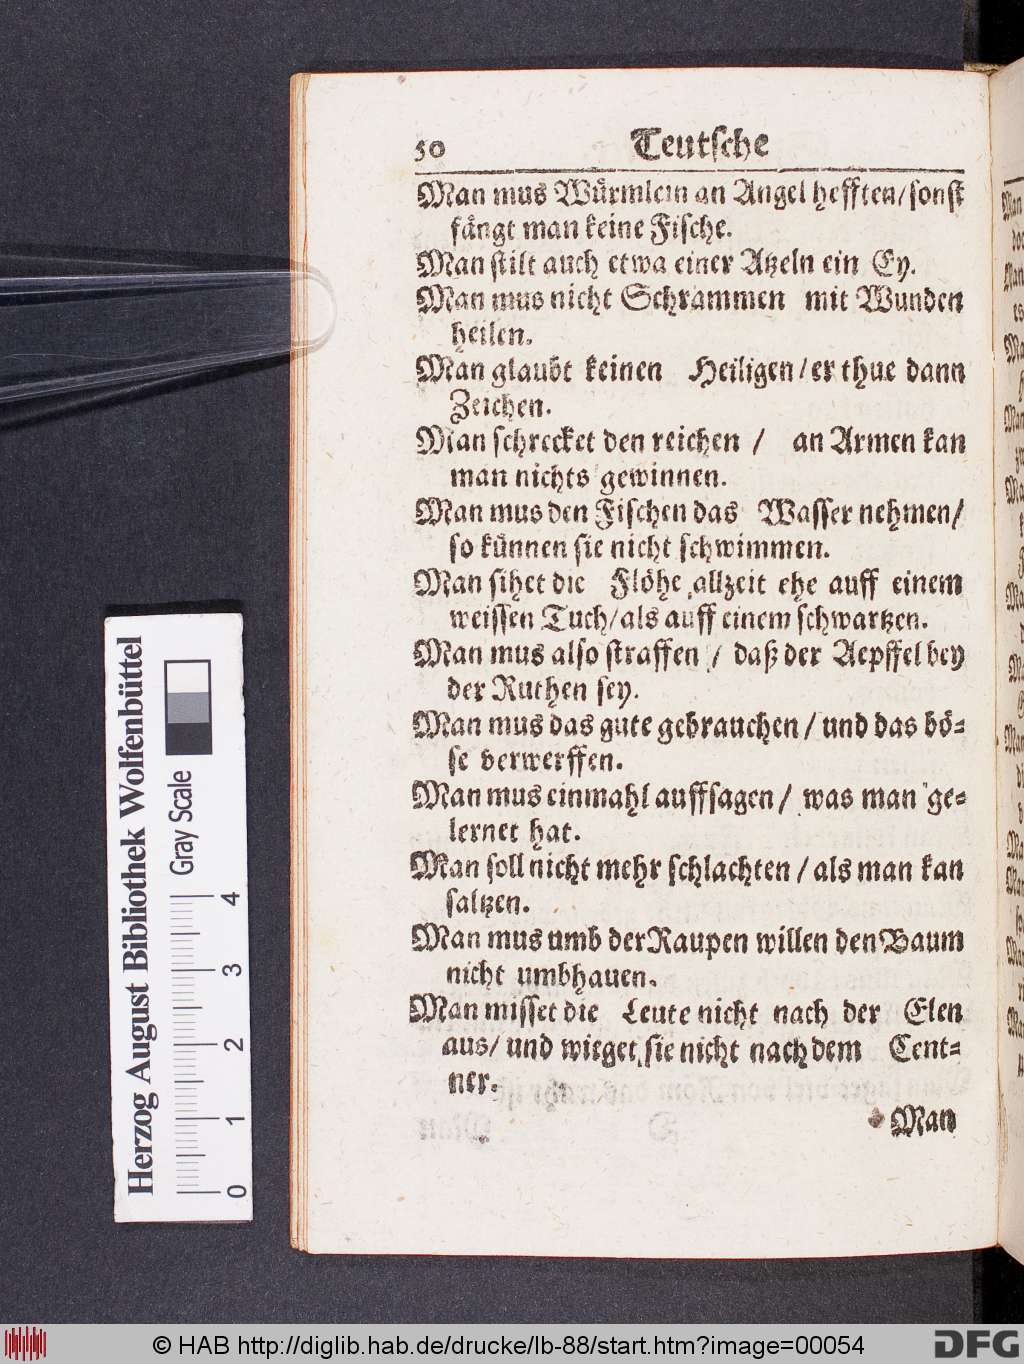 50 Teutsche
Man mus Würmlein an Angel hefften/ sonst
fängt man keine Fische.
Man stilt auch etwa einer Atzeln ein Ey.
Man mus nicht Schrammen mit Wunden
heilen.
Man glaubt keinen Heiligen/ er thue dann
Zeichen.
Man schrecket den reichen / an Armen kan
man nichts gewinnen.
Man mus den Fischen das Wasser nehmen/
so künnen sie nicht schwimmen.
Man sihet die Flöhe allzeit ehe auff einem
weissen Tuch/ als auff einem schwartzen.
Man mus also straffen / daß der Aepffel bey
der Ruthen sey.
Man mus das gute gebrauchen / und das bö-
se verwerffen.
Man mus einmahl auffsagen / was man ge-
lernet hat.
Man soll nicht mehr schlachten / als man kan
saltzen.
Man mus umb der Raupen willen den Baum
nicht umbhauen.
Man misset die Leute nicht nach der Elen
aus/ und wieget sie nicht nach dem Cent-
ner.
Man
Herzog August Bibliothek Wolfenbüttel
Gray Scale
0 1 2 3 4
© HAB http://diglib.hab.de/drucke/lb-88/start.htm?image=00054
DFG